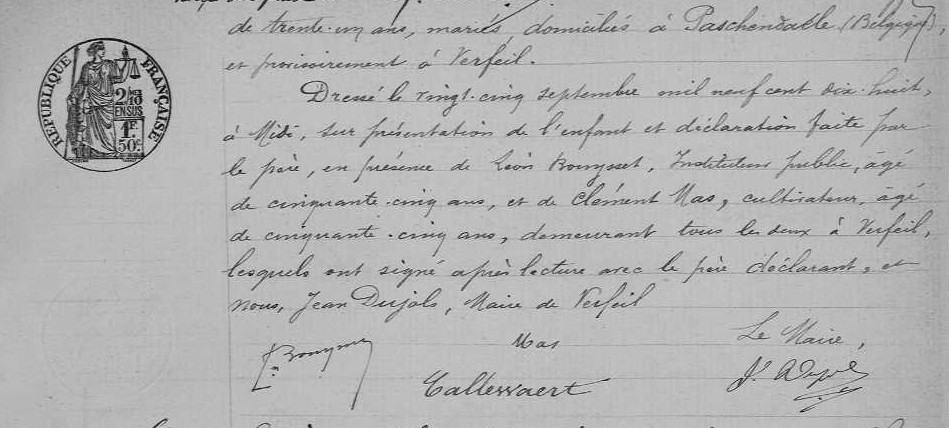 de trente-un ans, mariés, domiciliés à Paschendaele (Belgique),
et provisoirement à Verfeil.
RÉPUBLIQUE FRANÇAISE
2/10
EN SUS
1F
50c
Dressé le vingt-cinq septembre mil neuf cent dix-huit,
à Midi, sur présentation de l'enfant et déclaration faite par
le père, en présence de Léon Bouysset, Instituteur public, âgé
de cinquante-cinq ans, et de Clément Mas, cultivateur, âgé
de cinquante-cinq ans, demeurant tous les deux à Verfeil,
lesquels ont signé après lecture avec le père déclarant, et
nous, Jean Dujols, Maire de Verfeil
Mas
Le Maire,
Callewaert